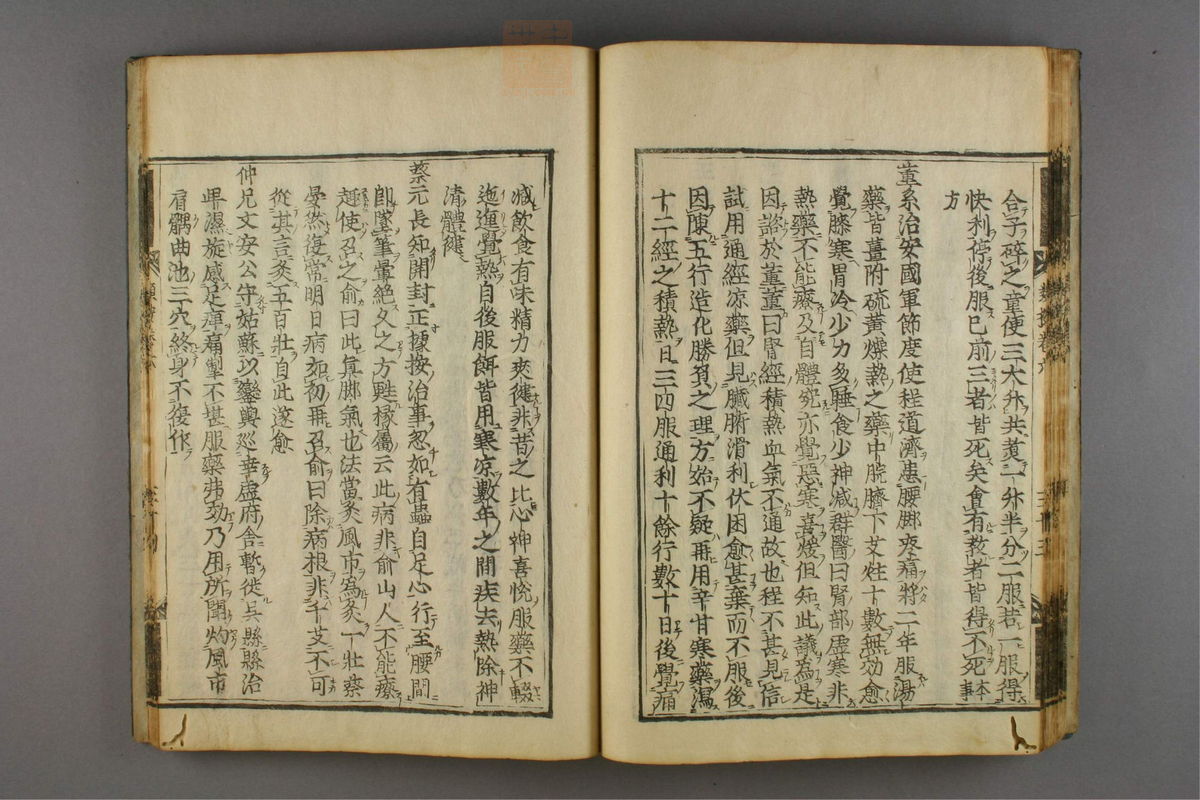 合子碎之童便三大升共煑一升半分二服若一服得
快利停後服已前三者皆死矣會有敎者皆得不死本事
方
董系治安國軍節度使程道濟患腰脚疼痛將二年服湯
藥皆薑附硫黃燥熱之藥中脘臍下艾炷十數無効愈
覺膝寒胃冷少力多睡食少神減群醫曰腎部虛寒非
熱藥不能療及自體究亦覺惡寒喜煖但知此議為是
因詢於董董曰腎經積熱血氣不通故也程不甚見信
試用通經凉藥但見臟腑滑利伏困愈甚棄而不服後
因陳五行造化勝負之理方始不疑再用辛甘寒藥瀉
十二經之積熱日三四服通利十餘行數十日後覺痛
減飲食有味精力爽健非昔之比心神喜悅服藥不輟
迤邐覺熱自後服餌皆用寒凉數年之間疾去熱除神
清體健
蔡元長知開封正據按治事忽如有蟲自足心行至腰間
卽墜筆暈絕久之方甦掾屬云此病非俞山人不能療
趣使召之俞曰此眞脚氣也法當灸風市爲灸一壯蔡
晏然復常明日病如初再召俞曰除病根非千艾不可
從其言灸五百壯自此遂愈
仲兄文安公守姑蘇以鑾輿巡幸虛府舍暫徙吳縣縣治
卑濕旋感足痺痛掣不甚服藥弗効乃用所聞灼風市
肩髃曲池三穴終身不復作